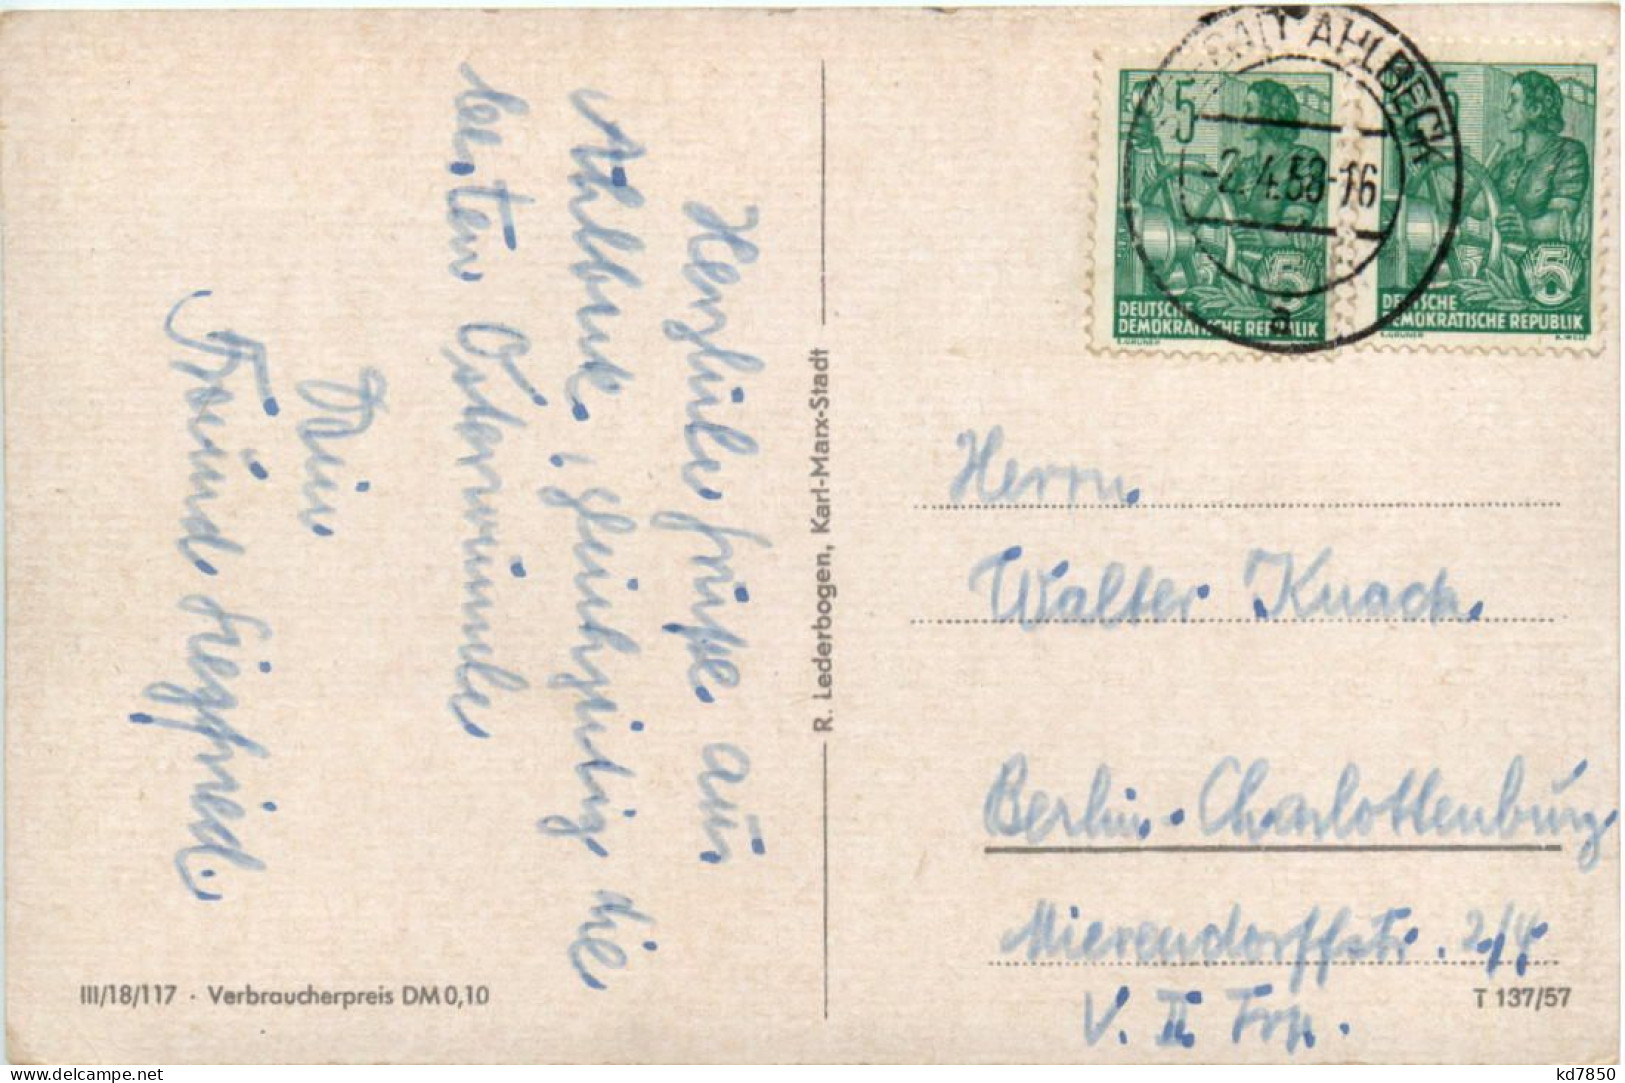 Herzliche Grüße aus
Ahlbeck, gleichzeitig die
besten Osterwünsche
Dein
Freund Siegfried.
R. Lederbogen, Karl-Marx-Stadt
III/18/117 · Verbraucherpreis DM 0,10
AHLBECK
-2.4.58-16
a
5
5
DEUTSCHE
DEMOKRATISCHE REPUBLIK
E.GRUNER
5
5
DEUTSCHE
DEMOKRATISCHE REPUBLIK
E.GRUNER K.WOLF
Herrn
Walter Knack
Berlin-Charlottenburg
Mierendorffstr. 2/4
V. II Trp.
T 137/57
www.delcampe.net
kd7850